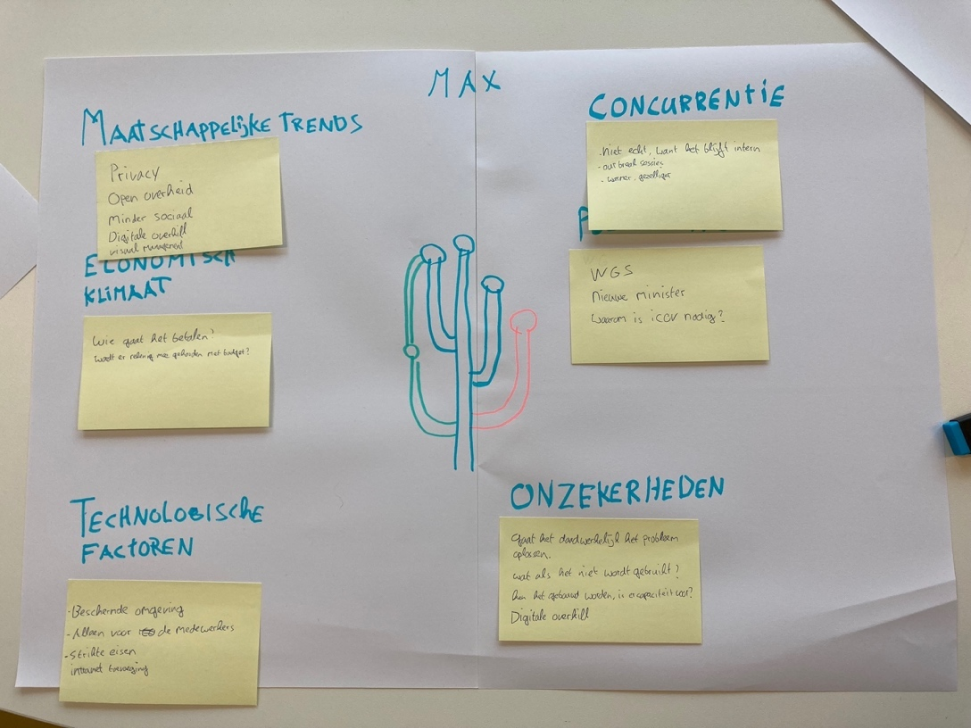 MAX
MAATSCHAPPELIJKE TRENDS
Privacy
Open overheid
Minder sociaal
Digitale overkill
visual management
ECONOMISCH
KLIMAAT
Wie gaat het betalen?
Wordt er rekening mee gehouden met budget?
TECHNOLOGISCHE
FACTOREN
-Beschermde omgeving
-Alleen voor de medewerkers
-Strikte eisen
intranet toevoeging
CONCURRENTIE
-Niet echt, want het blijft intern
-outbreak sessies
-gezelliger
WGS
Nieuwe minister
Waarom is iCOV nodig?
ONZEKERHEDEN
Gaat het daadwerkelijk het probleem
oplossen.
Wat als het niet wordt gebruikt?
Kan het gebouwd worden, is er capaciteit voor?
Digitale overkill